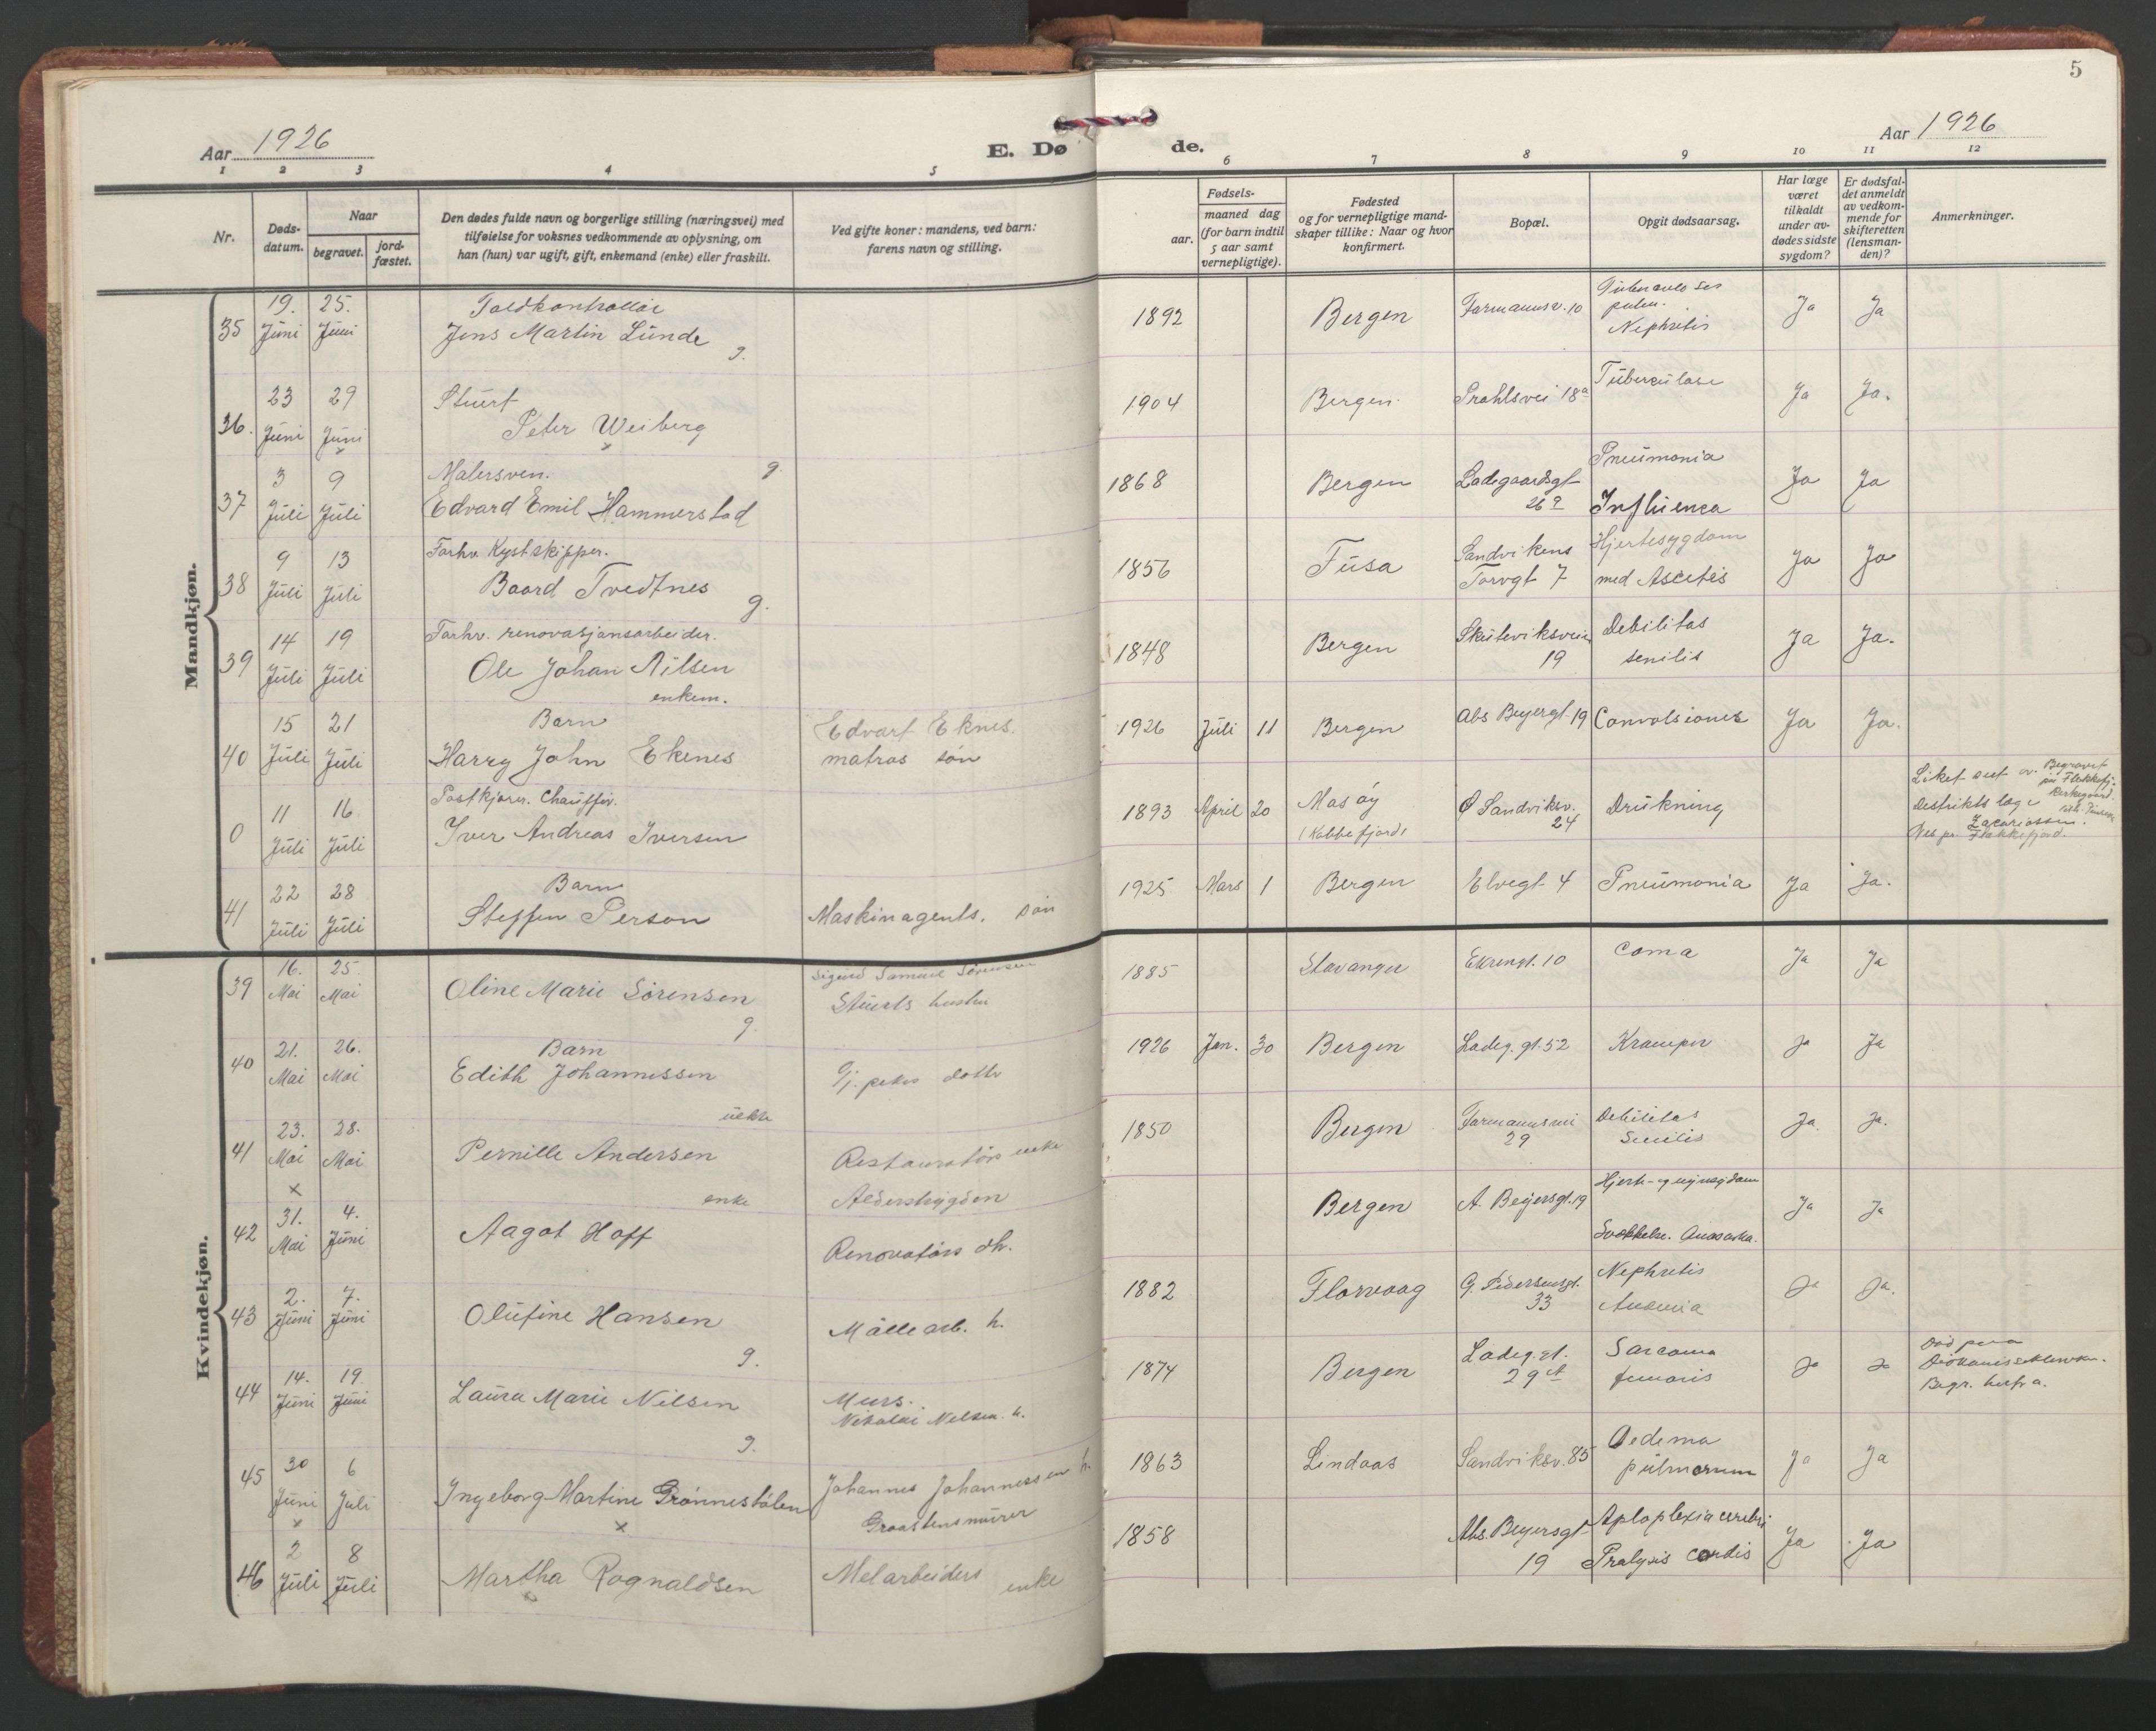 5
Aar 1926
E. Dø
de.
Aar 1926
1 2 3 4 5 6 7 8 9 10 11 12
Nr.
Døds-
datum.
Naar
begravet.
jord-
fæstet.
Den dødes fulde navn og borgerlige stilling (næringsvei) med
tilføielse for voksnes vedkommende av oplysning, om
han (hun) var ugift, gift, enkemand (enke) eller fraskilt.
Ved gifte koner: mandens, ved barn:
farens navn og stilling.
Fødsels-
aar.
maaned dag
(for barn indtil
5 aar samt
vernepligtige).
Fødested
og for vernepligtige mand-
skaper tillike: Naar og hvor
konfirmert.
Bopæl.
Opgit dødsaarsag.
Har læge
været
tilkaldt
under av-
dødes sidste
sygdom?
Er dødsfal-
det anmeldt
av vedkom-
mende for
skifteretten
(lensman-
den)?
Anmerkninger.
Mandkjøn.
35 19. Juni 25. Juni
Toldkontrollør
Jens Martin Lunde g.
1892 Bergen Farmannsv. 10
Tuberculoses
pulm.
Nephritis
Ja Ja
36. 23 Juni 29 Juni
Stuert
Peter Weiberg
x x
1904 Bergen Prahlsvei 18a Tuberculose Ja Ja.
37 3 Juli 9 Juli
Malersven. g.
Edvard Emil Hammerstad
1868 Bergen Ladegaardsgt
26a
Pneumonia
Influensa
Ja Ja
38 9 Juli 13 Juli
Forhv. Kystskipper.
Baard Tvedtnes g.
1856 Fusa
Sandvikens
Torvgt 7
Hjertesygdom
med Ascites
Ja Ja
39 14 Juli 19 Juli
Forhv. renovasjonsarbeider.
Ole Johan Nilsen
enkem.
1848 Bergen
Skuteviksveien
19
Debilitas
senilis
Ja Ja.
40 15 Juli 21 Juli
Barn
Harry John Ekenes
Edvart Eknes.
matros søn
1926 Juli 11 Bergen Abs Beyergt. 19 Convolsiones Ja Ja.
0 11 Juli 16 Juli
Postkjører. Chauffør.
Iver Andreas Iversen
1893 April 20
Masøy
(Kobbefjord)
Ø Sandviksv.
24
Drukning
Liket sect av Begravet
paa Flekkefj.
Distriktslæge Kirkegaard
Zacariassen.
Nes pr. Flekkefjord.
41 22 Juli 28 Juli
Barn
Steffen Person
Maskinagents. søn
1925 Mars 1 Bergen Elvegt 4 Pneumonia Ja Ja.
Kvindekjøn.
39 16. Mai 25. Mai
Oline Marie Sørensen
g.
Sigurd Samuel Sørensen
Stuerts hustru
1885 Stavanger Ekrengt. 10 Coma Ja Ja
40 21. Mai 26. Mai
Barn
Edith Johannessen
uekte
Gj. pikes datter
1926 Jan. 30 Bergen Ladeg. gt. 52 Kramper Ja Ja
41 23. Mai 28. Mai
x
Pernille Andersen
enke
Restauratørs enke
Alderstrygden
1850 Bergen
Farmannsvei
29
Debilitas
Senilis
Ja. Ja.
42 31. Mai 4. Juni
Aagot Hoff
Renovatørs dtr.
Bergen A. Beyersgt. 19
Hjerte- og nyresygdom
Ja Ja
43 2. Juni 7. Juni
Olufine Hansen
g.
Møllearb. h.
1882 Florvaag
G. Pedersensgt.
33
Nephritis
Anæmia
Ja Ja.
44 14. Juni 19. Juni
Laura Marie Nilsen
g.
Murs.
Nikolai Nilsen h.
1874 Bergen
Ladeg. gt.
29
Sarcoma
femoris
Ja Ja
Død paa
Diakonissehjemmet.
Begr. herfra.
45 30 Juni 6 Juli
x
Ingeborg Martine Grønnestølen
x
Johannes Johannessen h.
Graastensmurer
1863 Lindaas Sandviksv. 85
Oedema
pulmonum
Ja Ja
46 2 Juli 8 Juli
Martha Rognaldsen
Melarbeiders enke
1858
Abs. Beyersgt
19
Aploplexia cerebri
Pralysis cordis
Ja Ja